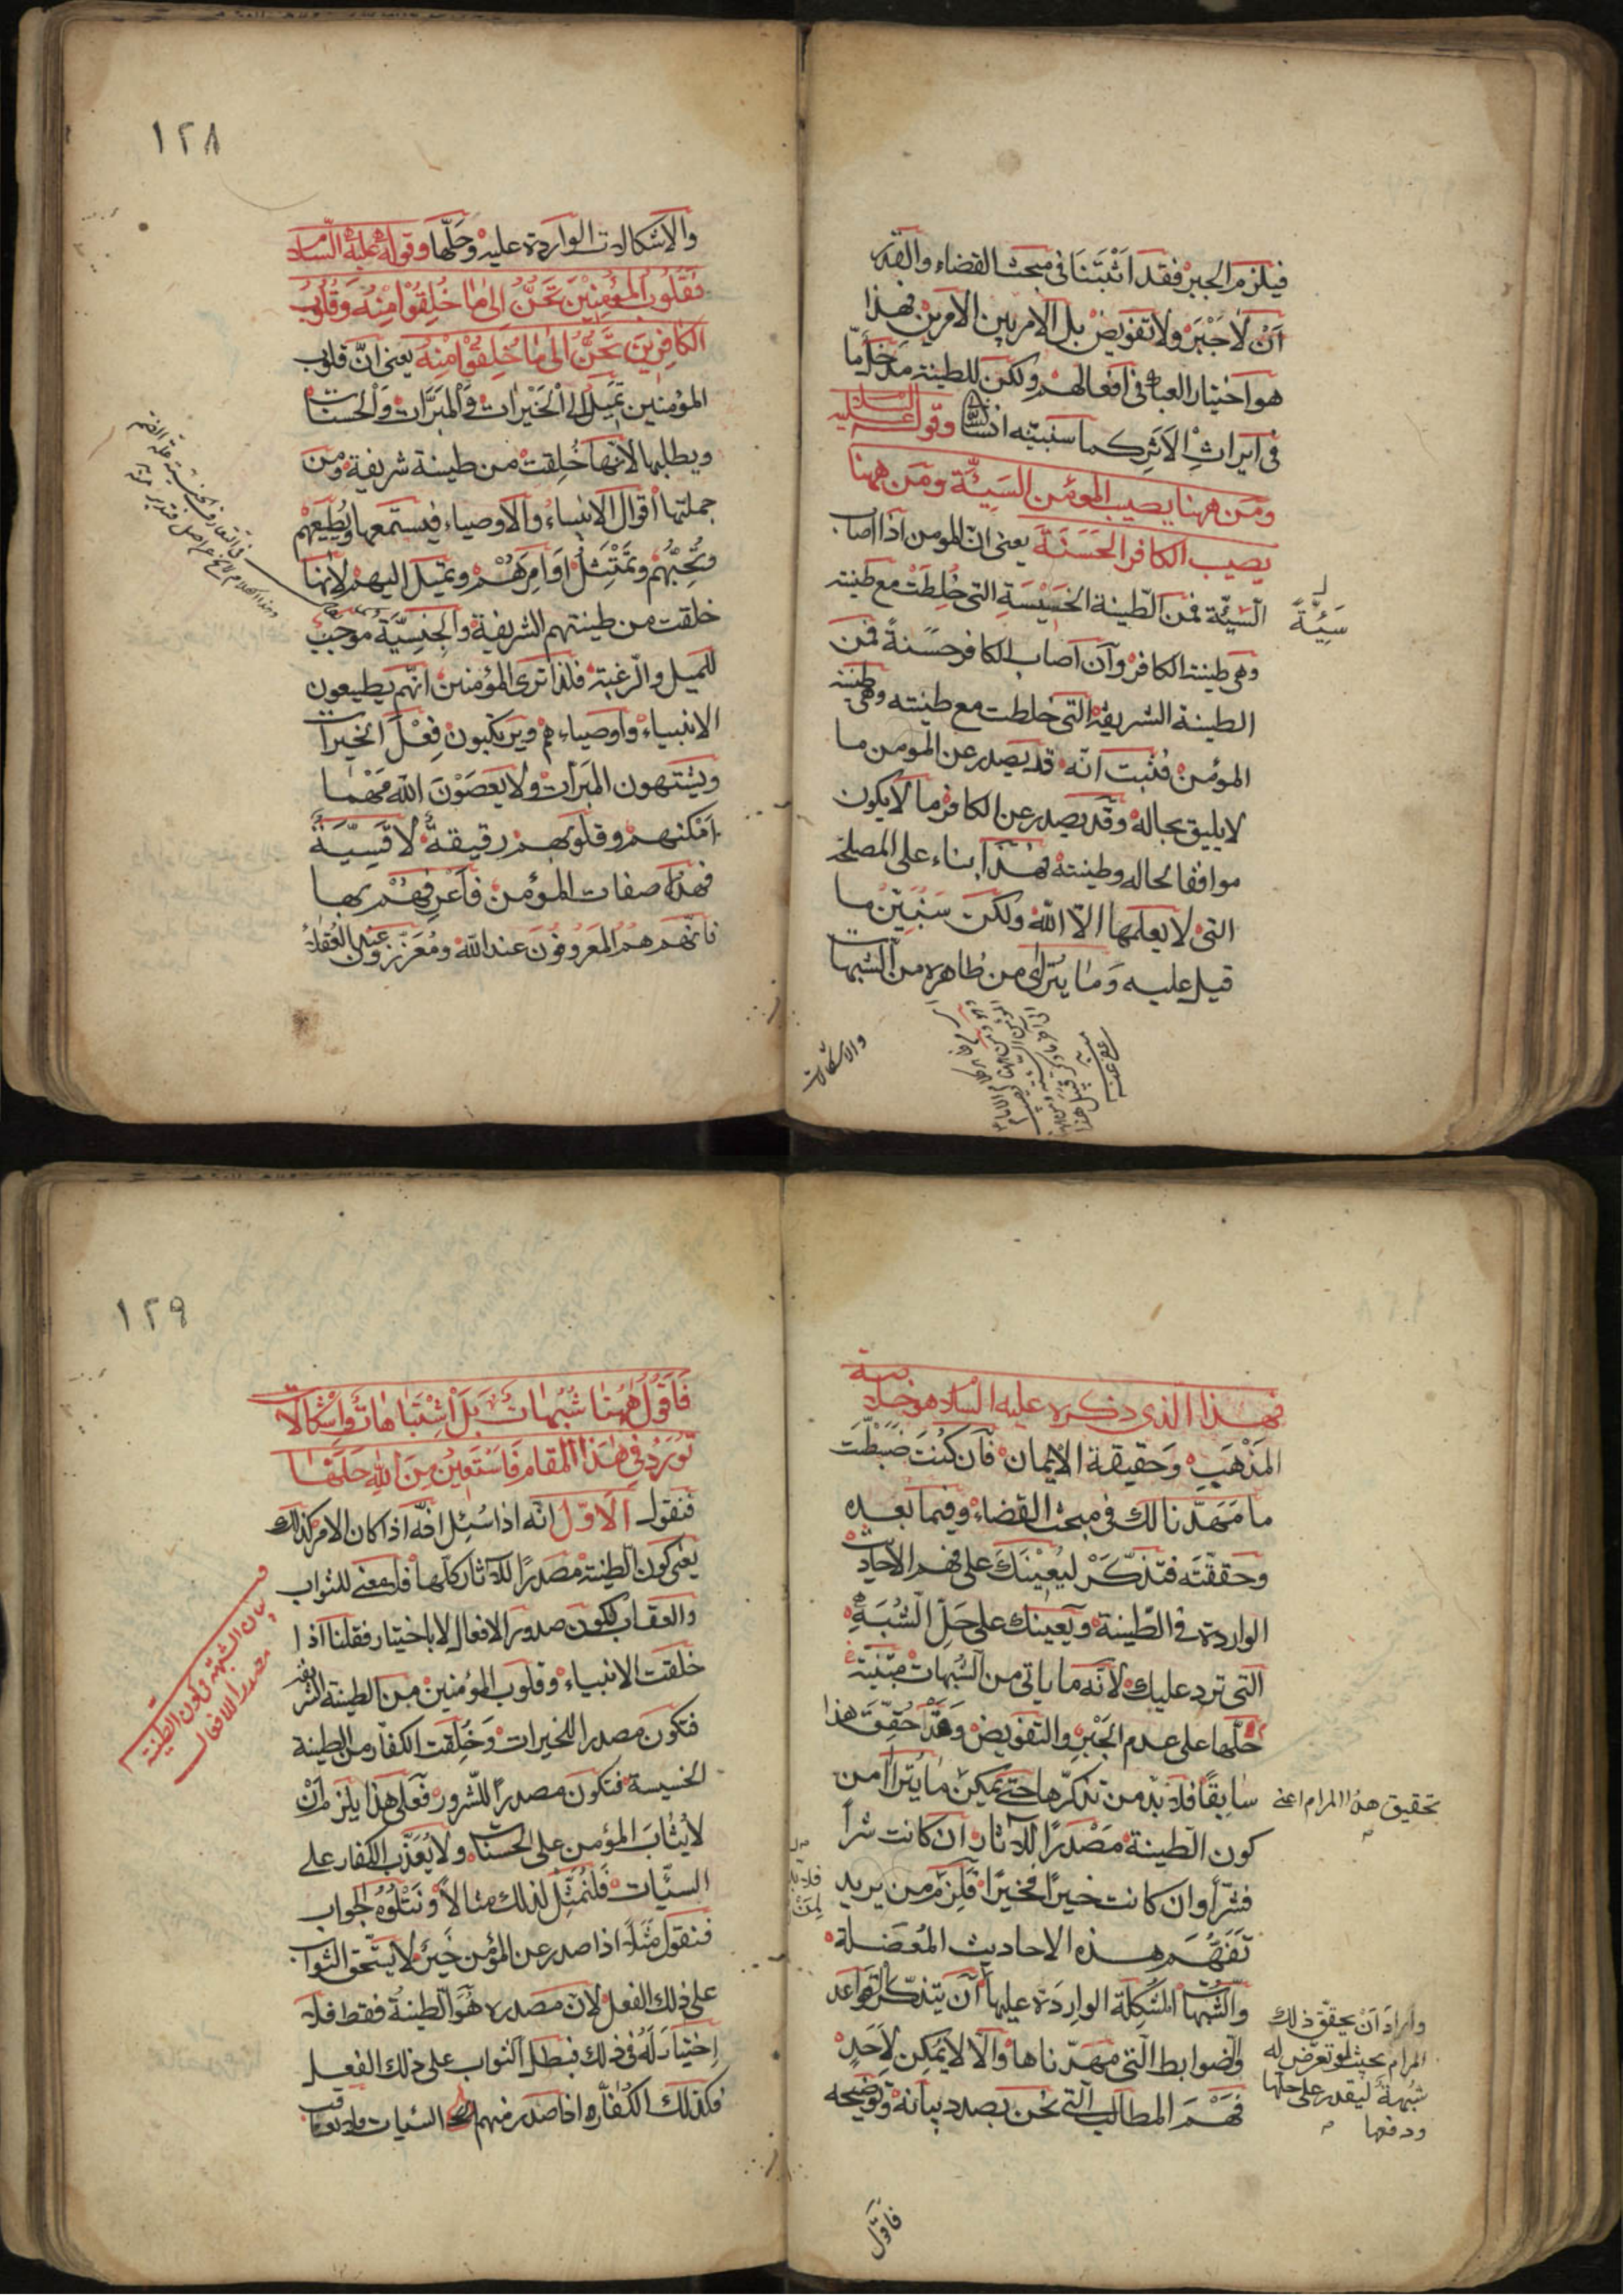 فيلزم الجبر فقد اثبتنا فى مبحث القضاء والقدر
آن لا جَبْرَ ولا تفويض بل الامر بين الامرين فهذا
هو اختيار العباد فى افعالهم ولكن للطينة مدخلاً مّا
فى ايراث الاَثر كما سنبيّنه انشاء الله وقوله عليه السلام
ومن ههنا يصيب المؤمن السَيّئة ومَن ههنا
يصيب الكافر الحَسَنَةَ يعنى انّ المومن اذا اصاب
السَيّئة فمن الطّينة الخَسيْسَةِ التى خُلِطَتْ مع طينته
سَيِّئَةً
وهى طينة الكافر وآن اصاب الكافر حسَنةً فمن
الطينة الشريفة التى خلطت مع طينته وهى طينة
المؤمن فثبت انّه قد يصدر عن المومن ما
لا يليق بحاله وقد يصدر عن الكافر ما لا يكون
موافقا لحاله وطينته فهذا بناء على المصلحة
التى لا يعلمها الّا الله ولكن سَنُبَيّنُ ما
قيل عليه وَما يُتراى من ظاهره من الشبهات
والاشكالات
١٢٨
والاشكالات الواردة عليه وحَلّها وقوله عليه السّلام
فَقُلُوبُ المؤمِنِيْنَ تَحَنُّ اِلىٰ مٰا خُلِقُوْا مِنْهُ وَقُلُوبُ
الكٰافِرِيْنَ تَحَنُّ الىٰ مٰا خُلِقُوْا مِنْهُ يعنى انّ قلوب
المؤمنين تَمِيلُ الى الْخَيْرٰات وَالْمَبَرَّات وَالْحسنات
ويطلبها لانّها خُلِقتْ من طينة شريفة ومن
جملتها اقوال الانبياء والاوصياء فيستمعها ويُطيعهم
وتُحِبُّهم وتَمْتَثِلُ اَوَامِرَهُمْ وتميل اليهم لانها
خلقت من طينتهم الشريفة والجنسِيَّة موجب
للميل والرغبة فلذا ترى المؤمنين انّهم يطيعون
الانبياء واوصياءهم ويرتكبون فِعْلَ الخيرات
ويشتهون المَبَرات ولا يَعصَوْنَ الله مَهْمٰا
اَمْكنهم وقلوبهم رقيقةٌ لا قَسِيَّةٌ
فهذه صفات المؤمن فَاَعْرِفهُمْ بها
فانّهم هُمُ المَعروفونَ عند الله ومُعَزّزون عند العُقلاءِ
فهذا الّذى ذكره عليه السلام هو خلاصة
المَذْهَبِ وَحقيقة الايمان فَآن كُنتَ ضَبَطْتَ
ما مَهّدنا لك فى مبحث القضاء وفيما بعده
وحققّتَه فتذكّرْ ليُعِيْنَكَ على فهم الاحاديث
الواردة فى الطّينة ويعينك على حلّ الشُبَهِ
التى ترد عليك لانّه ما ياتى من الشُبهات مبْنِيّة
حَلّها على عدم الجَبْرِ والتفويض وَقد حُقّقَ هذا
سٰابِقًا فلا بدّ من تذكّرها حتى يمكن ما يُترا امن
تحقيق هذا المرام اعنى
كون الطينة مَصْدرًا للآثار آن كانت شراً
فشرّاً وان كانت خيرًا فخيرًا فَلزم من يريد
فلا بدّ
لِمَنْ
تَفَهُّمَ هذه الاحاديث المُعضَلة
والشُبهات المُشكِلة الوارِدَة عليها آن يتذكّر القواعد
وَالضوابط الّتى مهّدناها وَاَلّا لا يُمكن لاِحَدٍ
فَهْمَ المطالب الّتى نحن بصدد بيانه وتوضيحه
وارادَ اَنْ يحقّق ذلك
المرام بحيث لو تعرّض له
شُبهة ليقدر على حلّها
ودفعها
فاقول
١٢٩
فَاَقُولُ هٰهُنٰا شُبُهٰاتٌ بَلْ اشْتِبٰاهٰاتٌ وَاِشْكٰالات
تُوْرَدُ فى هٰذَا المقام فَاسْتَعِيْنُ مِنَ اللهِ حَلّهٰا
فنقول الاوّل انّه اذا سُئِل انّه اذا كان الامر كذلك
يعنى كون الطينة مصْدرًا للآثار كلّها فلا معنى للثواب
والعقاب لكون صدور الافعال لا باختيار فقلنا اذا
خلقت الانبياء وقلوب المؤمنين من الطينة الشريفة
فتكون مصدرا للخيرات وَخُلِقت الكفّار من الطينة
الخسيسة فتكون مصدرًا للشّرور فعلى هذا يلزم اَنْ
لا يُثٰابَ المؤمن على الحسنات ولا يُعَذّب الكفار على
السيّئات فلنُمَثّل لذلك مثالاً ونَتْلُوُه الجواب
فنقول مَثَلاً اذا صدر عن المؤمن خَيرٌ لا يستحق الثواب
على ذلك الفعل لانّ مصدره هُوَ الطّينةُ فقط فلا
اِختيارَ لَهُ فى ذلك فبطل الثواب على ذلك الفعل
فكذلك الكُفّار اذا صدر منهم السيّئات ولا يعاقب
بيان الشبهة فى كون الطينة
مصدرا للافعال